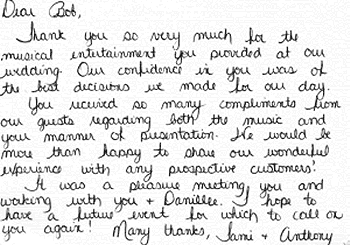 Dear Bob,
Thank you so very much for the
musical entertainment you provided at our
wedding. Our confidence in you was of
the best decisions we made for our day.
You received so many compliments from
our guests regarding both the music and
your manner of presentation. We would be
more than happy to share our wonderful
experience with any prospective customers!
It was a pleasure meeting you and
working with you + Danielle. I hope to
have a future event for which to call on
you again! Many thanks, Jami + Anthony